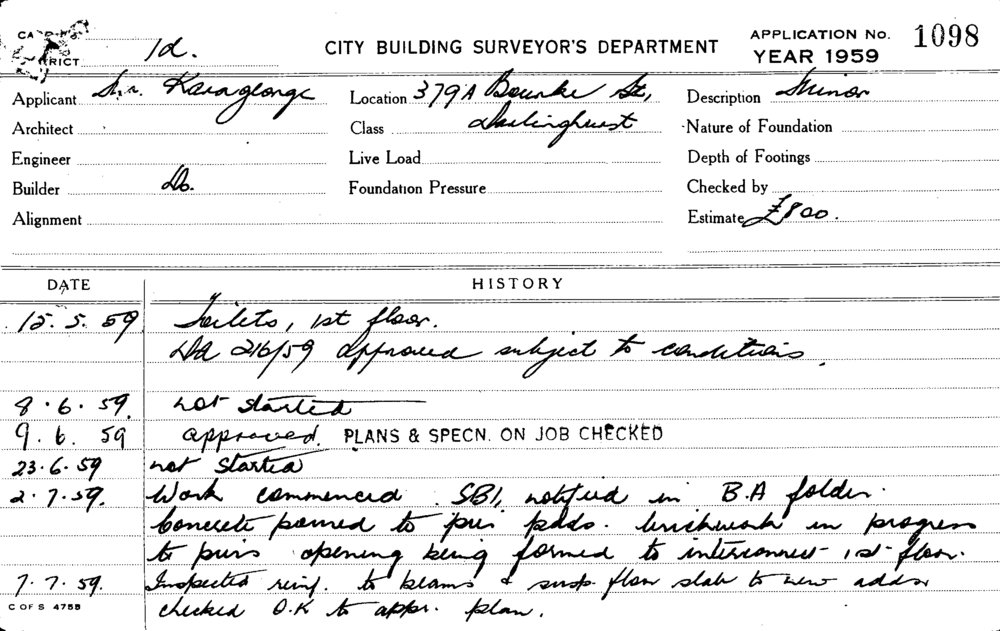 1d. CITY BUILDING SURVEYOR'S DEPARTMENT APPLICATION No. 1098
YEAR 1959
Applicant Karageorge Location 379A Bourke St, Description Minor
Architect Class Darlinghurst Nature of Foundation
Engineer Live Load Depth of Footings
Builder Do. Foundation Pressure Checked by
Alignment Estimate £800.
DATE HISTORY
15.5.59 Toilets, 1st floor.
DA 216/59 approved subject to conditions.
8.6.59 not started
9.6.59 approved. PLANS & SPECN. ON JOB CHECKED
23.6.59 not started
2.7.59. Work commenced. SBI, notified in B.A folder.
Concrete poured to pier pads. brickwork in progress
to piers opening being formed to interconnect 1st floor.
7.7.59. Inspected reinf. to beams & susp. floor slab to new addn
checked O.K to appr. plan.
C OF S 4755